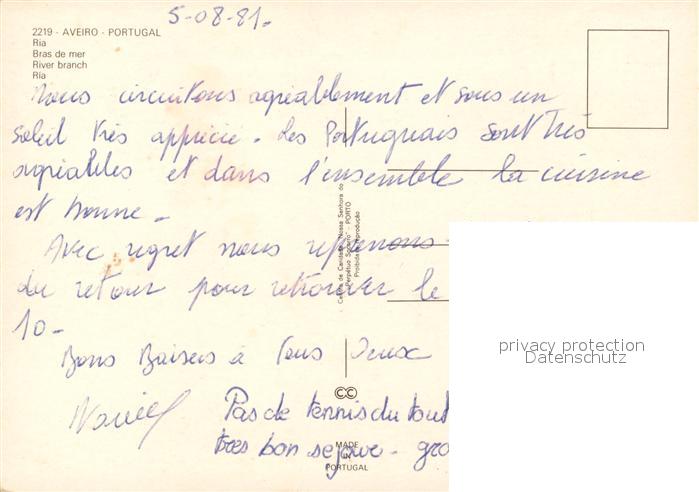 5-08-81.
2219 - AVEIRO - PORTUGAL
Ria
Bras de mer
River branch
Ria
Nous circuitons agréablement et sous un
soleil très apprécié. Les Portuguais sont très
agréables et dans l'ensemble la cuisine
est bonne.
Avec regret nous reprenons
du retour pour retrouver le
10-
Bons Baisers à Tous Deux
Pas de tennis du tout
très bon sejour - gro
Centro de Caridade "Nossa Senhora do
Perpétuo Socorro" - PORTO
Proibida a reprodução
MADE
IN
PORTUGAL
privacy protection
Datenschutz